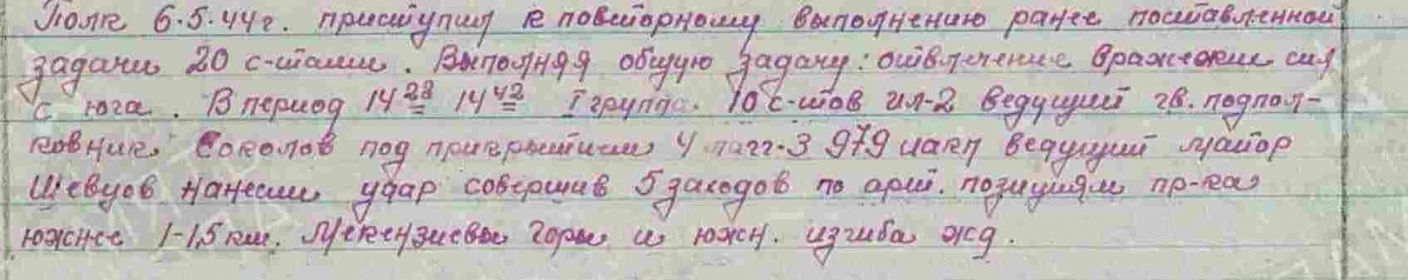 Полк 6.5.44г. приступил к повторному выполнению ранее поставленной
задачи 20 с-тами. Выполняя общую задачу: отвлечение вражеских сил
с юга. В период 14 28 14 42 I группа. 10 с-тов ил-2 ведущий гв. подпол-
ковник Соколов под прикрытием 4 лагг-3 979 иап ведущий майор
Шевцов нанесли удар совершив 5 заходов по арт. позициям пр-ка
южнее 1-1,5 км. Мекензиевы горы и южн. изгиба жд.